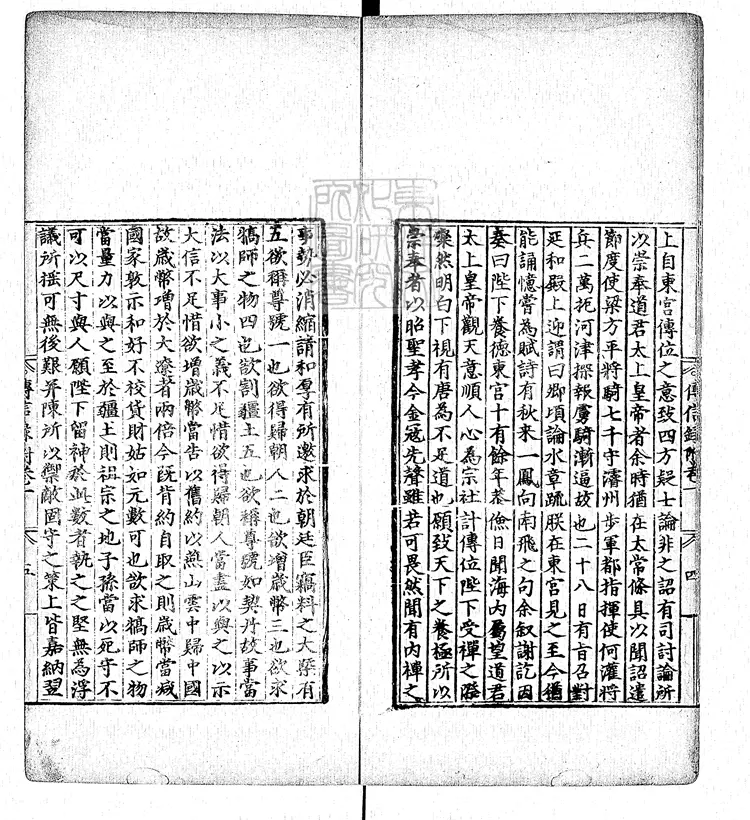 上自東宮傳位之意致四方疑士論非之詔有司討論所
以崇奉道君太上皇帝者余時猶在太常條具以聞詔遣
節度使梁方平將騎七千守濬州步軍都指揮使何灌將
兵二萬扼河津探報虜騎漸逼故也二十八日有旨召對
延和殿上迎謂曰卿頃論水章疏朕在東宮見之至今猶
能誦憶嘗為賦詩有秋來一鳳向南飛之句余叙謝訖因
奏曰陛下養德東宮十有餘年恭儉日聞海內屬望道君
太上皇帝觀天意順人心為宗社計傳位陛下受禪之際
燦然明白下視有唐為不足道也願致天下之養極所以
崇奉者以昭聖孝今金冦先聲雖若可畏然聞有內禪之
傳信錄附卷一
四
事勢必消縮請和厚有所邀求於朝廷臣竊料之大槩有
五欲稱尊號一也欲得歸朝人二也欲增歲幣三也欲求
犒師之物四也欲割疆土五也欲稱尊號如契丹故事當
法以大事小之義不足惜欲得歸朝人當盡以與之以示
大信不足惜欲增歲幣當告以舊約以燕山雲中歸中國
故歲幣增於大遼者兩倍今既背約自取之則歲幣當减
國家敦示和好不校貨財姑如元數可也欲求犒師之物
當量力以與之至於疆土則祖宗之地子孫當以死守不
可以尺寸與人願陛下留神於此數者執之之堅無為浮
議所揺可無後艱并陳所以禦敵固守之策上皆嘉納翌
傳信錄附卷一
五